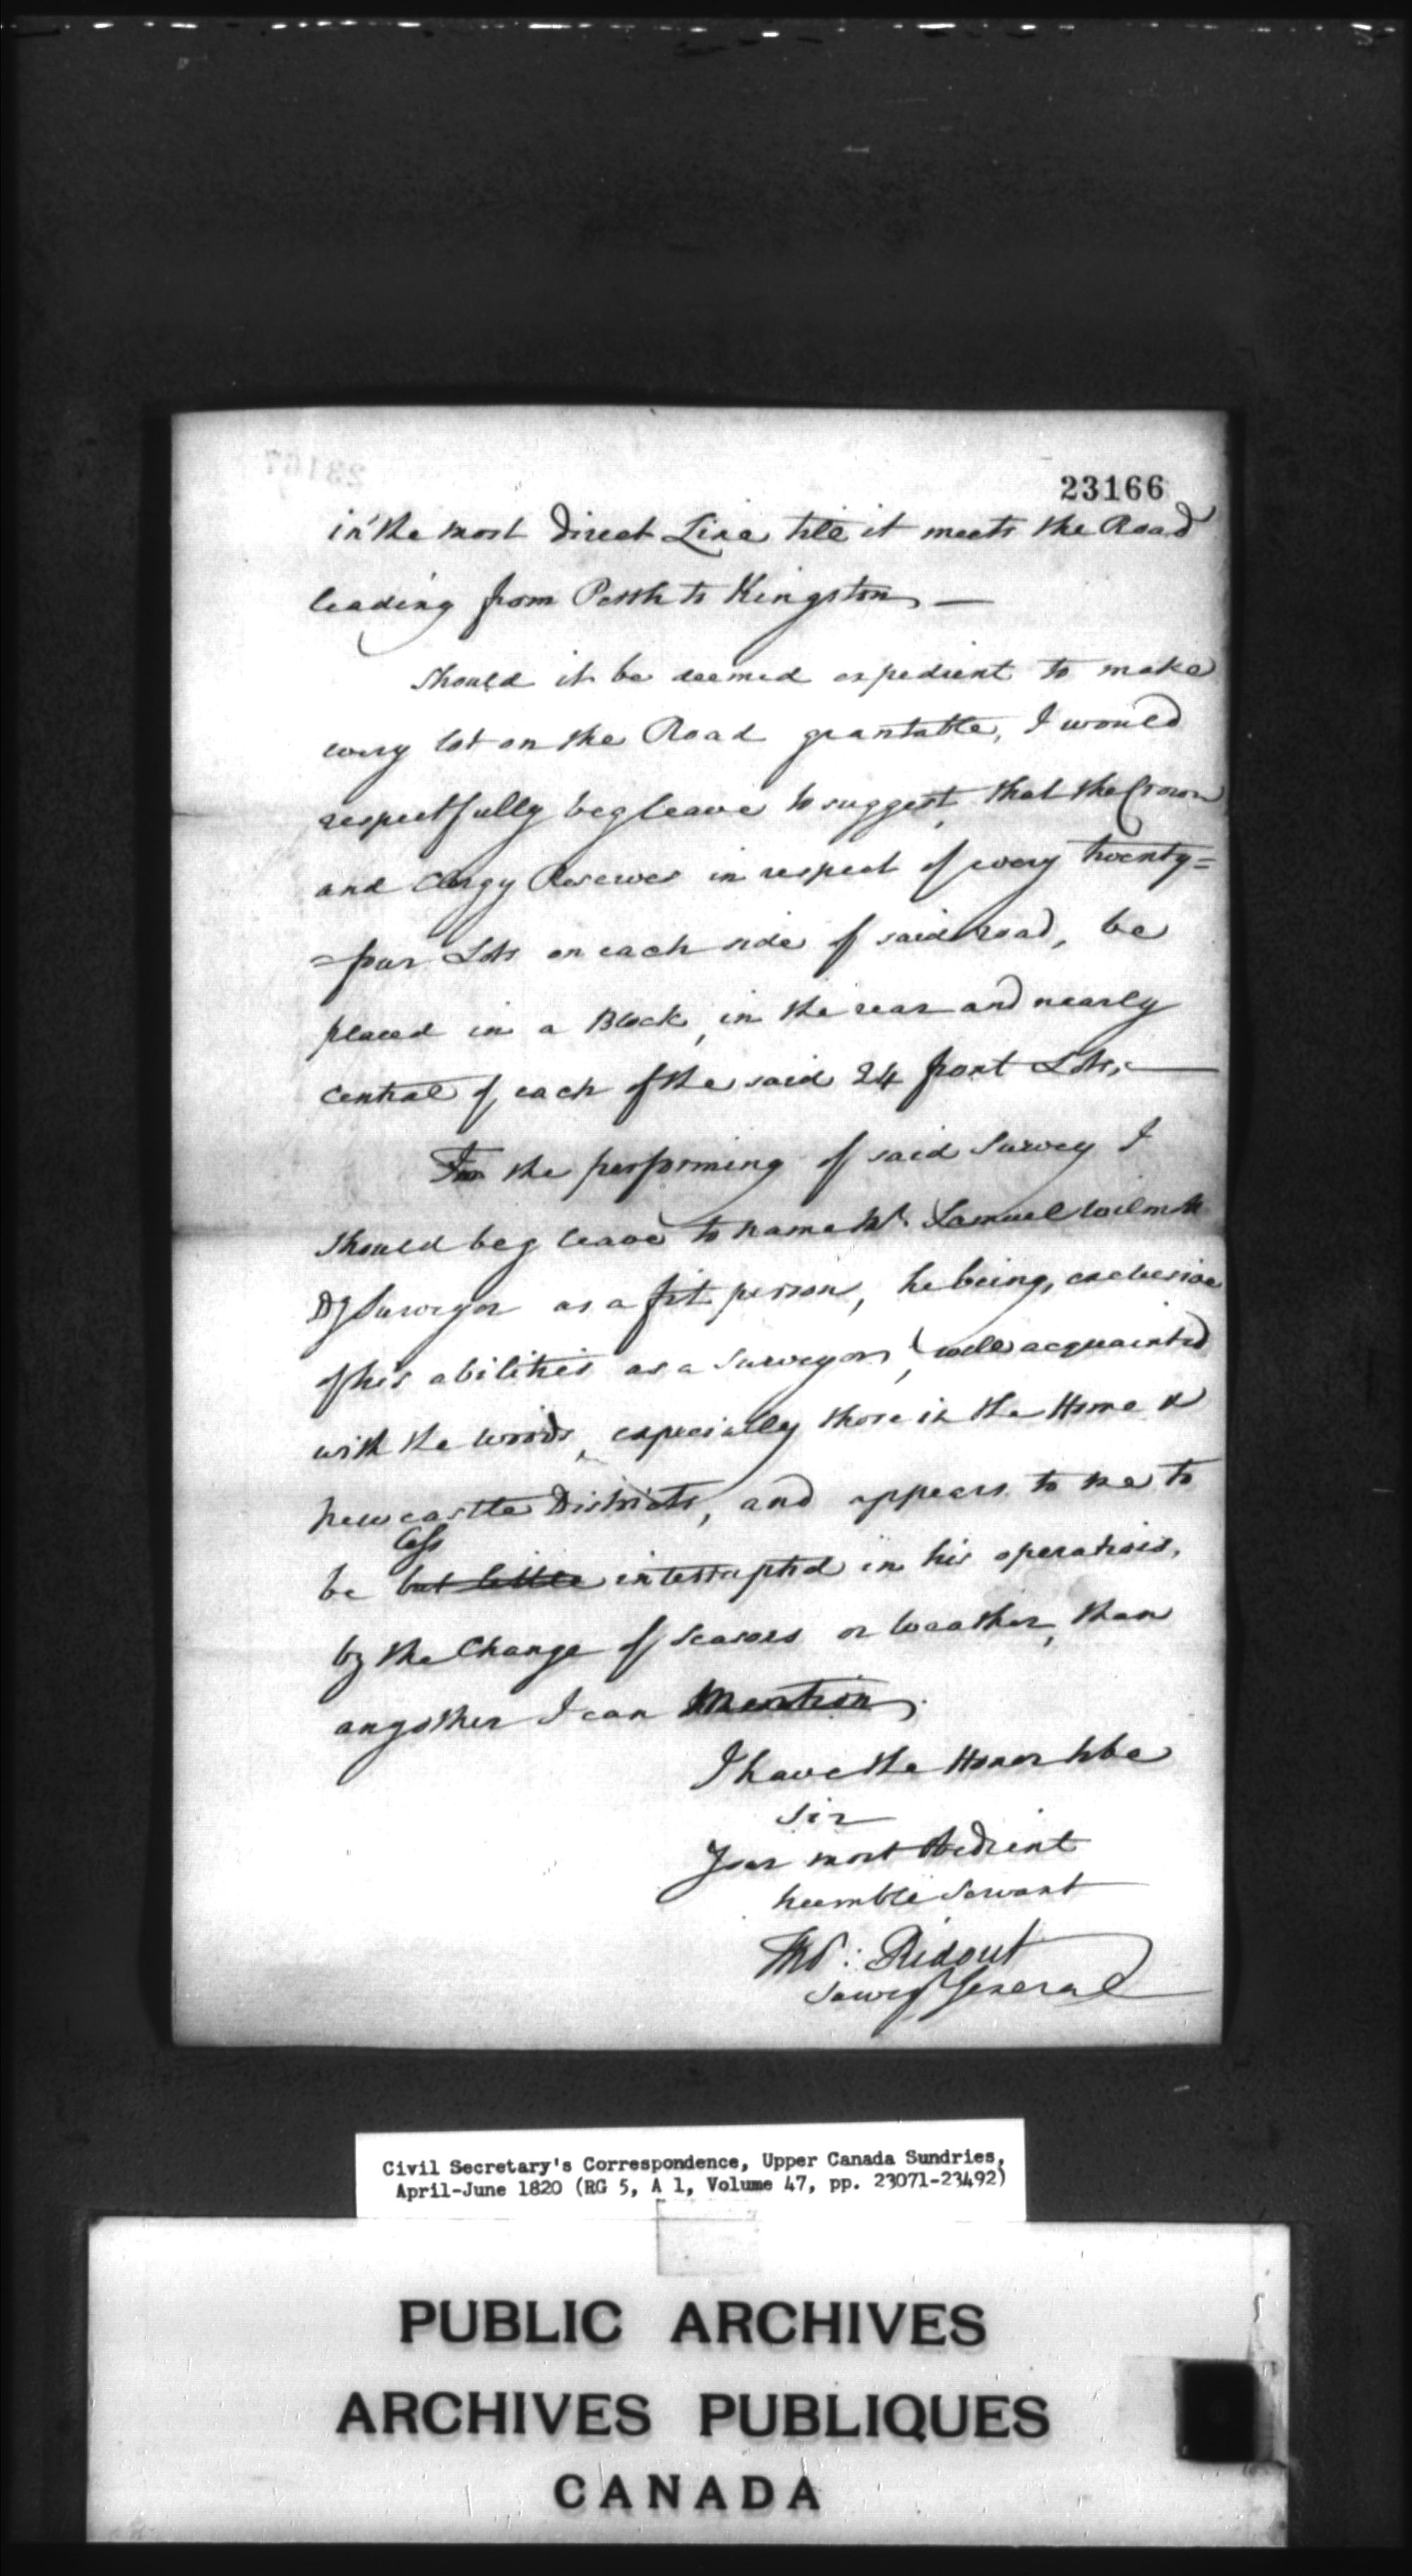 23166
in the most direct Line till it meets the Road
leading from Perth to Kingston, —
Should it be deemed expedient to make
every lot on the Road grantable, I would
respectfully beg leave to suggest, that the Crown
and Clergy Reserves in respect of every twenty=
=four Lots on each side of said road, be
placed in a Block, in the rear and nearly
Central of each of the said 24 front Lots, —
For the performing of said Survey I
should beg leave to name Mr. Samuel Wilmot
Dy Surveyor as a fit person, he being, exclusive
of his abilities as a Surveyor, well acquainted
with the woods, especially those in the Home &
Newcastle Districts, and appears to me to
less
be but little interrupted in his operations,
by the Change of Seasons or Weather, than
any other I can Mention.
I have the Honor to be
Sir
Your most Obedient
humble Servant
Thos: Ridout
Survr General
Civil Secretary's Correspondence, Upper Canada Sundries,
April-June 1820 (RG 5, A 1, Volume 47, pp. 23071-23492)
PUBLIC ARCHIVES
ARCHIVES PUBLIQUES
CANADA